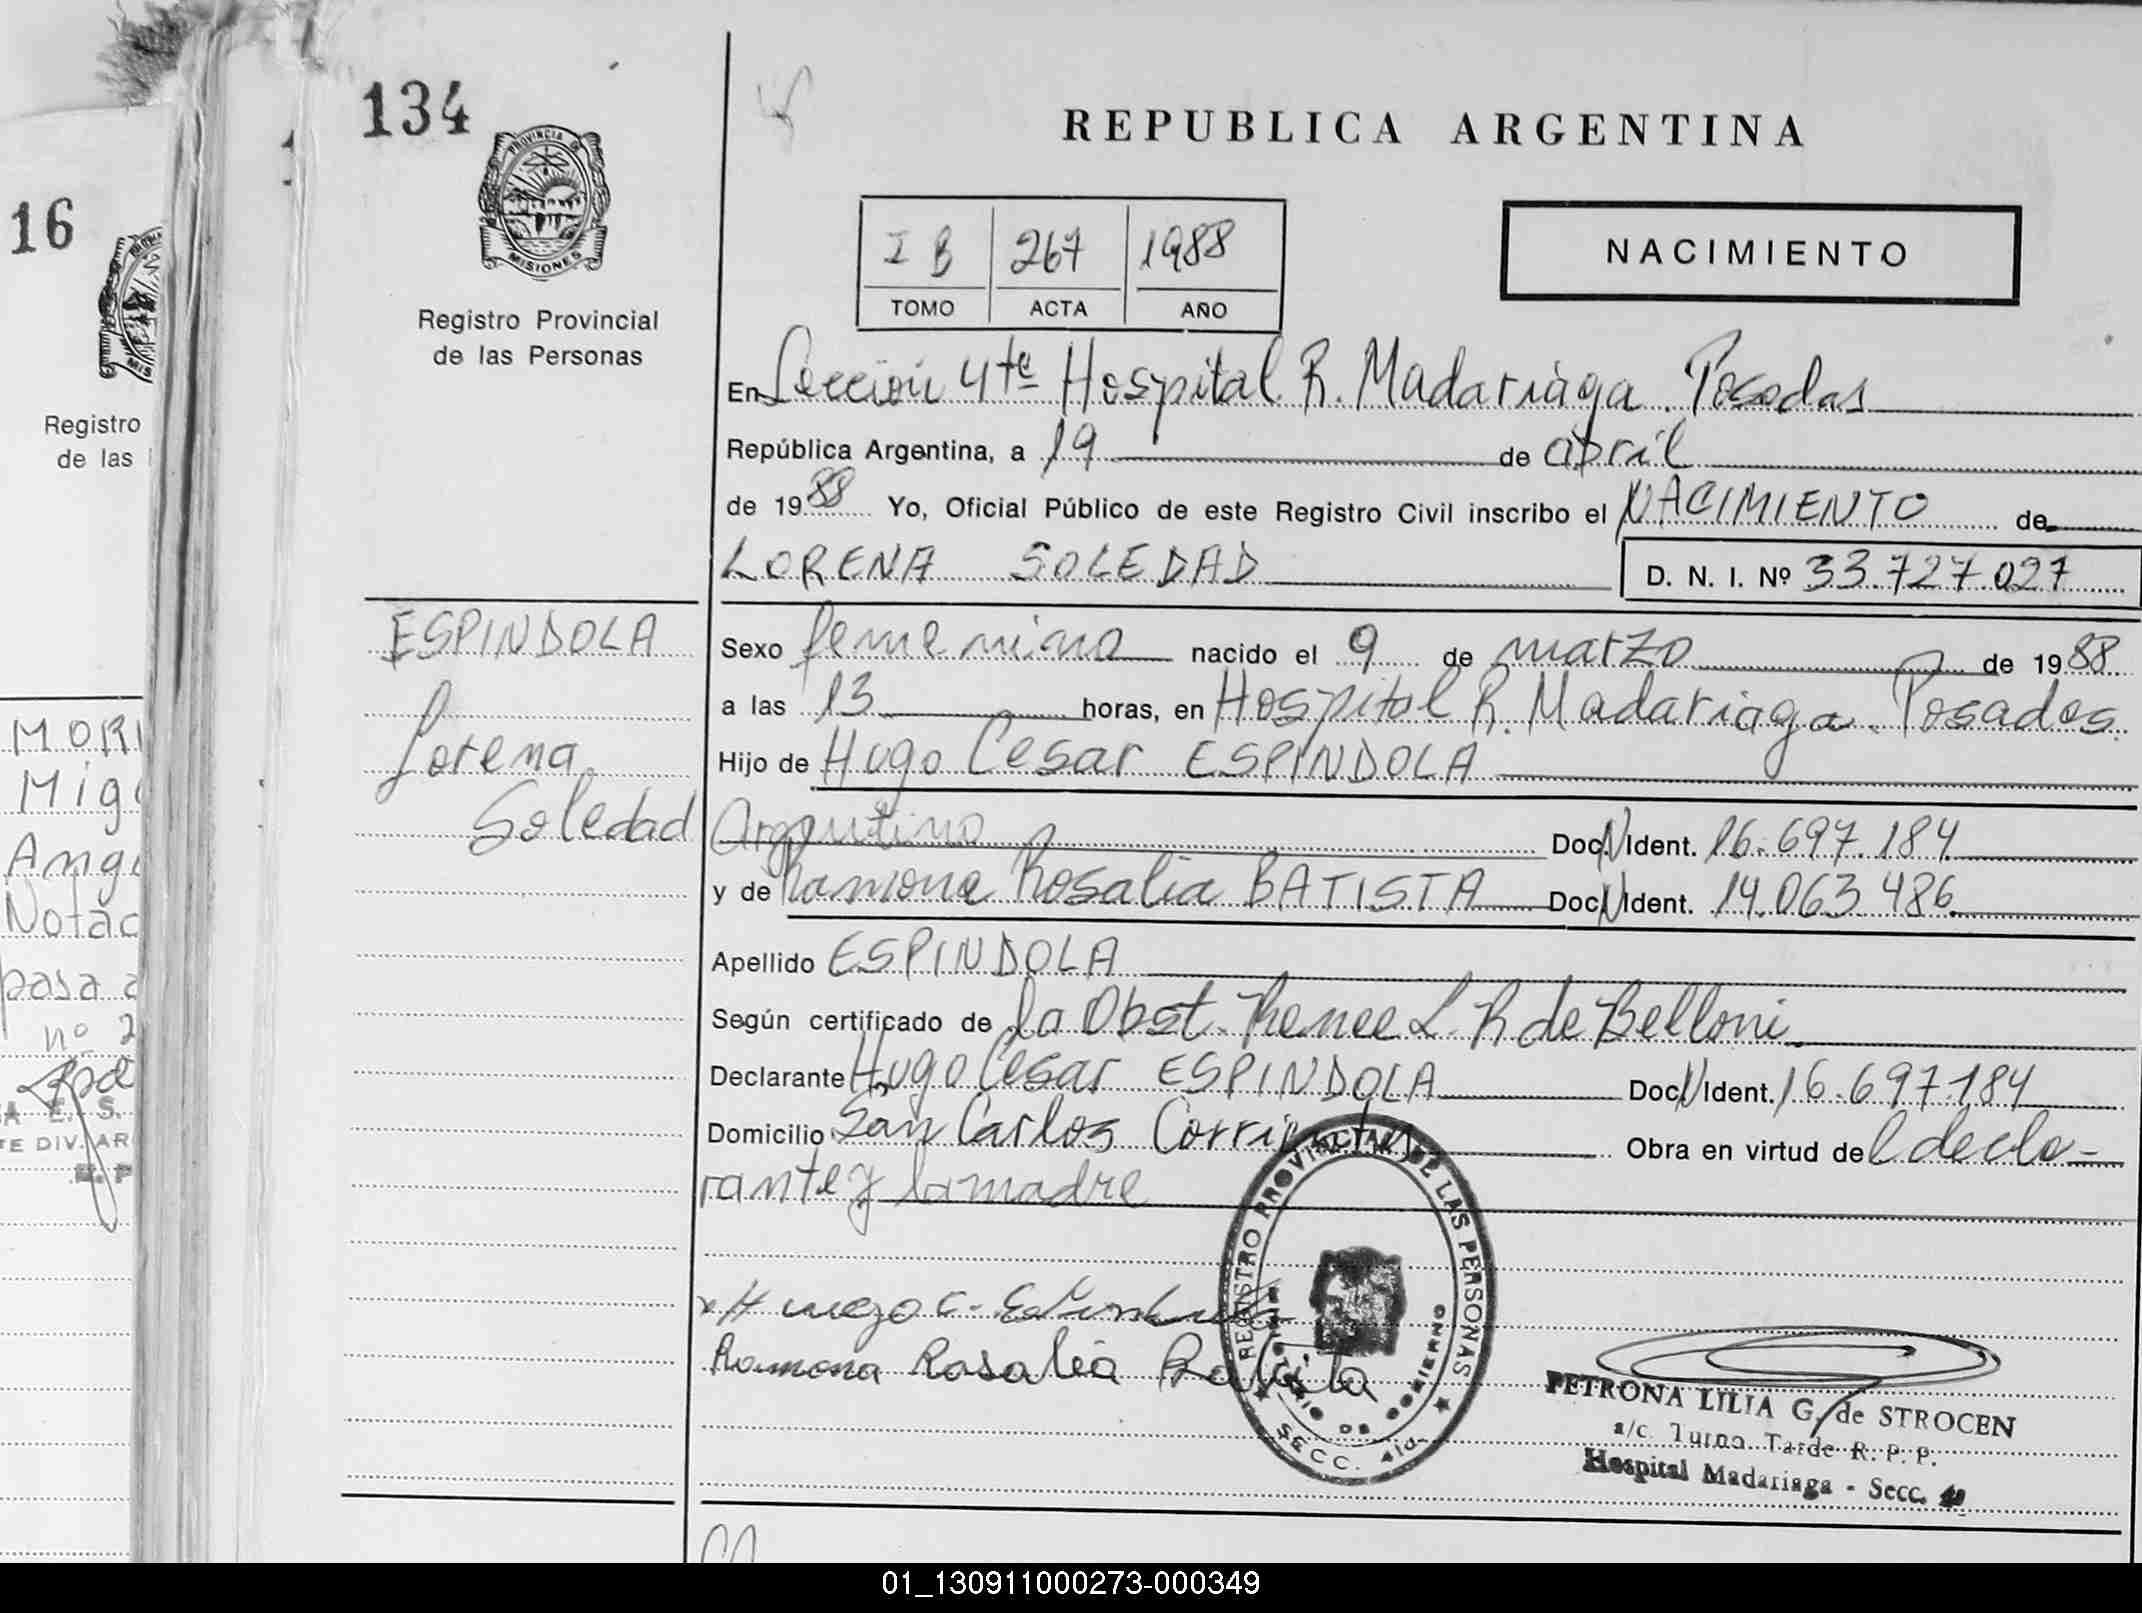 134
PROVINCIA DE
MISIONES
Registro Provincial
de las Personas
REPUBLICA ARGENTINA
I B 267 1988
TOMO ACTA AÑO
NACIMIENTO
En Sección 4ta Hospital R. Madariaga. Posadas
República Argentina, a 19 de abril
de 1988 Yo, Oficial Público de este Registro Civil inscribo el NACIMIENTO de
LORENA SOLEDAD D. N. I. Nº 33.727.027
ESPINDOLA
Lorena
Soledad
Sexo femenino nacido el 9 de marzo de 1988
a las 13 horas, en Hospital R. Madariaga. Posadas.
Hijo de Hugo Cesar ESPINDOLA
Argentino Doc. N Ident. 16.697.184
y de Ramona Rosalia BATISTA Doc. N Ident. 14.063.486
Apellido ESPINDOLA
Según certificado de la Obst. Renee L. R de Belloni.
Declarante Hugo Cesar ESPINDOLA Doc. N Ident. 16.697.184
Domicilio San Carlos Corrientes Obra en virtud del decla-
rante y la madre
Ramona Rosalia Batista
REGISTRO PROVINCIAL DE LAS PERSONAS
DE GOBIERNO
SECC. 4ta.
PETRONA LILIA G. de STROCEN
a/c. Turno Tarde R. P. P.
Hospital Madariaga - Secc. 4ª
16
MIS
Registro
de las
MORI
Mig
Ang
Notac
pasa a
nº 2
E. S.
TE DIV. AR
01_130911000273-000349